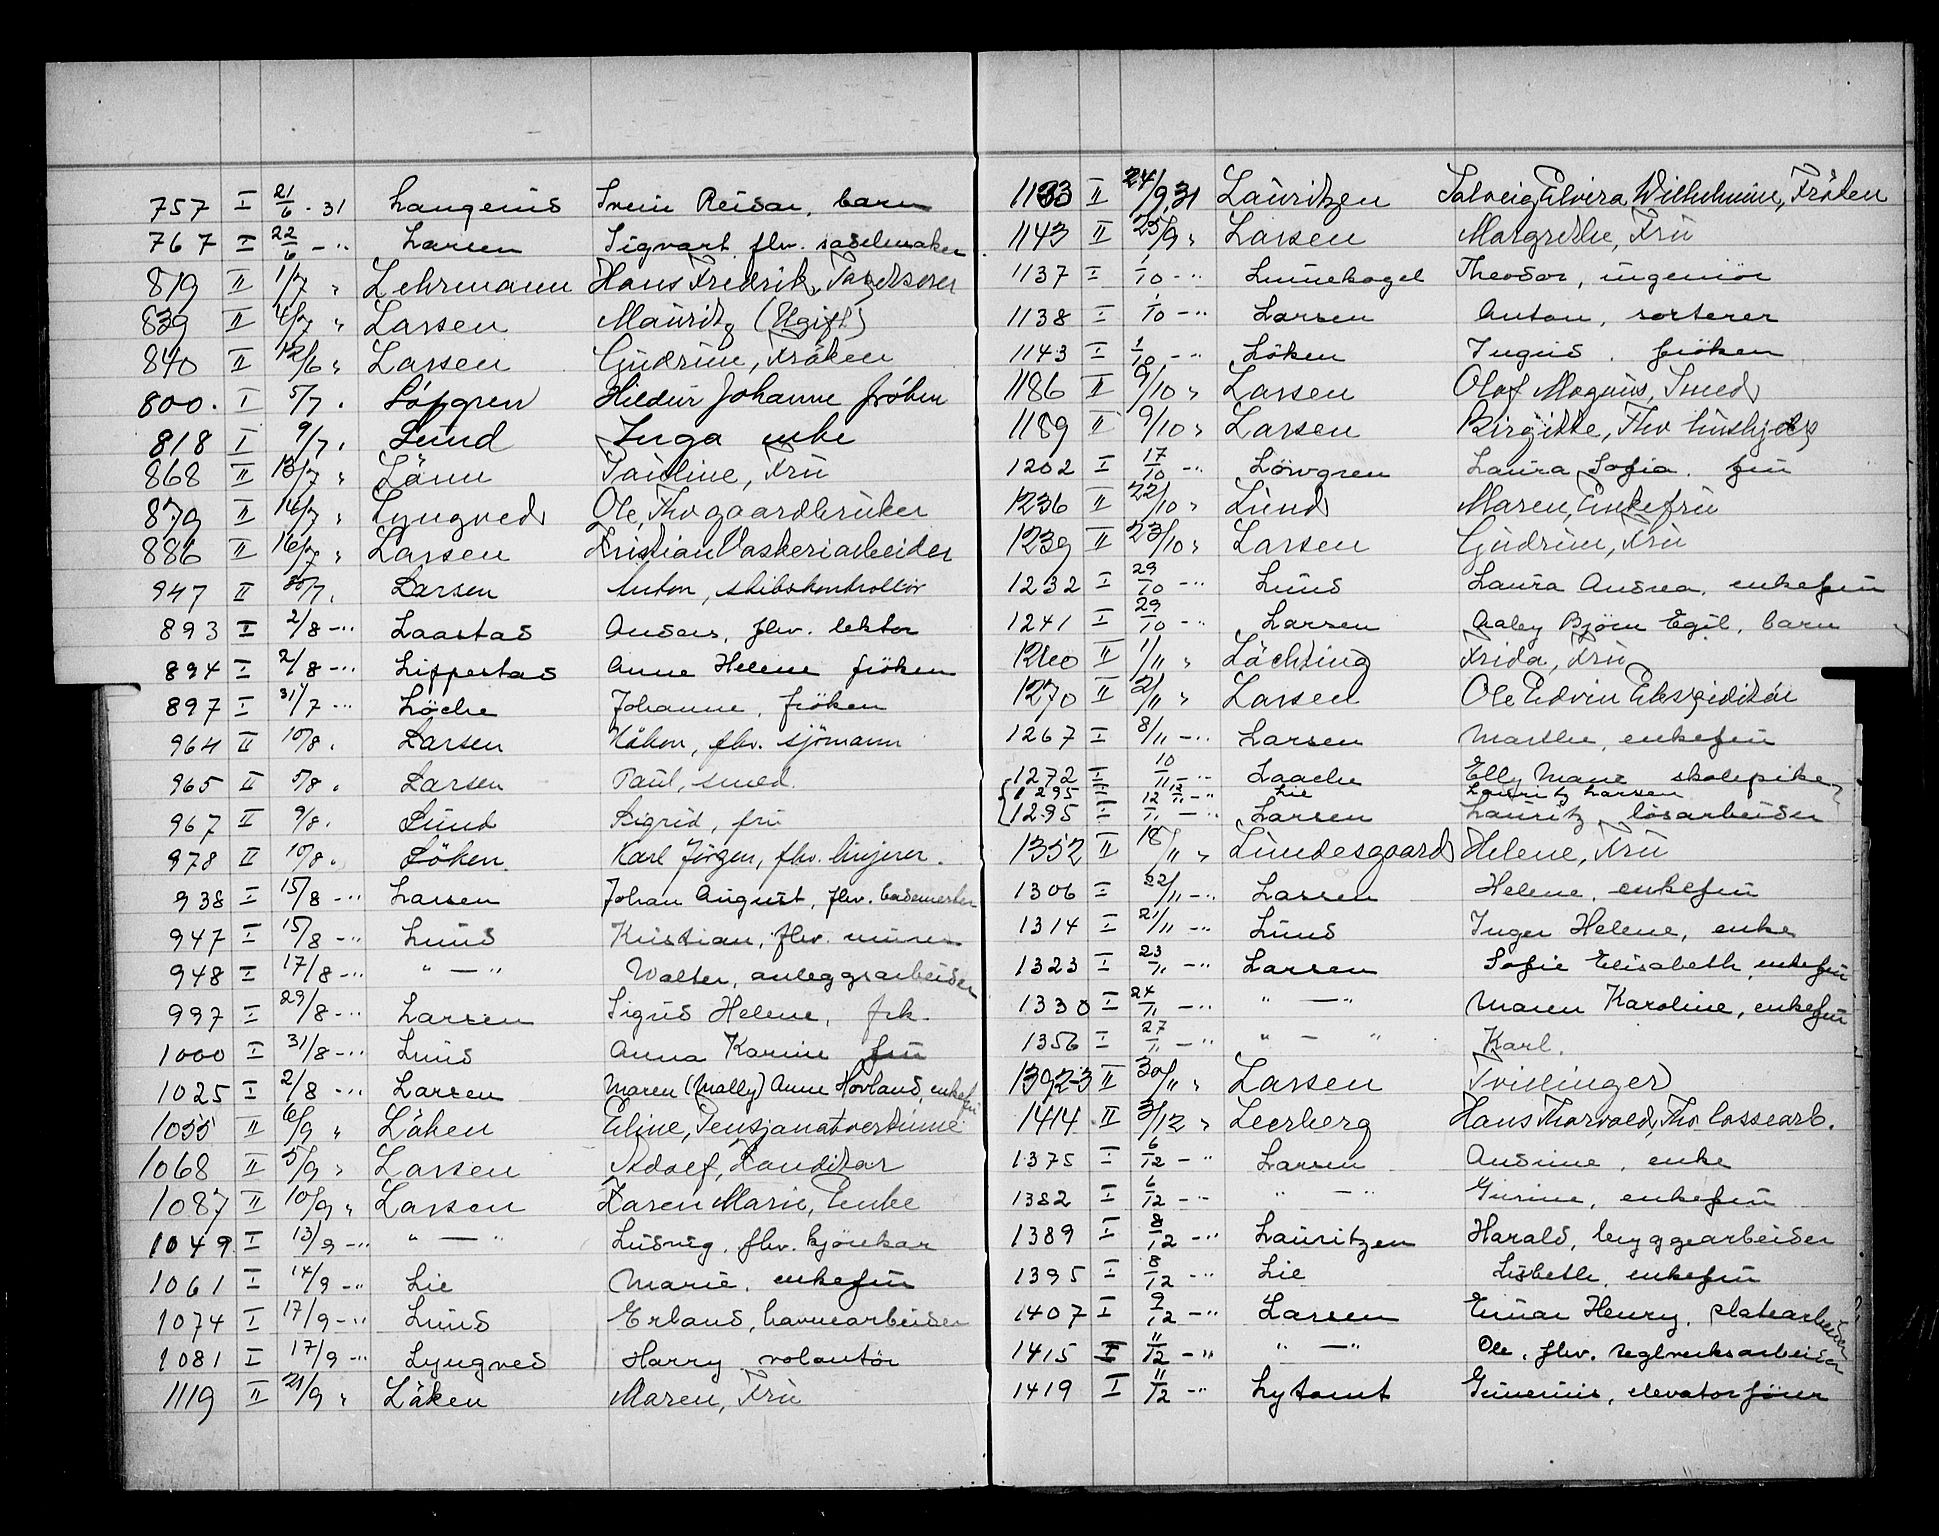 757 I 21/6 - 31 Langerud Svein Reidar, barn
767 I 22/6 - " Larsen Sigvart, fhv. sadelmaker
819 II 1/7 " Lehrmann Hans Fredrik,
839 II 4/7 " Larsen Mauritz (Ugift)
840 II 12/6 " Larsen Gudrun, Frøken
800. I 5/7 . Löfgren Hildur Johanne frøken
818 I 9/7 . Lund Inga enke
868 II 13/7 " Pauline, Fru
879 II 14/7 " Lyngved Ole, Fhv gaardbruker
886 II 16/7 " Larsen Kristian Vaskeriarbeider
947 II 30/7 . Larsen Anton, skibskontrollör
893 I 2/8 - " Laastad Anders, fhv. lektor
894 I 2/8 - " Lippestad Anne Helene frøken
897 I 31/7 - " Löche Johanne, frøken
964 II 10/8 . Larsen Håkon, fhv. sjömann
965 II 5/8 . Larsen Paul, smed.
967 II 9/8 . Lund Sigrid, fru
978 II 10/8 . Löken. Karl Jörgen, fhv. linjerer.
938 I 15/8 - " Larsen Johan August, fhv. bademester
947 I 15/8 - " Lund Kristian, fhv. murer
948 I 17/8 - " " — " Walter, anleggsarbeider
997 I 29/8 - " Larsen Sigrid Helene, frk.
1000 I 31/8 - " Lund Anna Karine fru
1025 I 2/8 - " Larsen Maren (Mally) Anne Hovland, enkefru
1055 II 6/9 " Løken Eline, Pensjonatvertinne
1068 II 5/9 " Larsen Adolf, Konditor
1087 II 10/9 " Larsen Karen Marie, Enke
1049 I 13/9 - " " — " Ludvig, fhv. kjörekar
1061 I 14/9 - " Lie Marie, enkefru
1074 I 17/9 - " Lund Erland, havnearbeider
1081 I 17/9 - " Lyngved Harry volontör
1119 II 21/9 " Løken Maren, Fru
1133 II 24/9 31 Lauritzen Solveig Elvira Wilhelmine, Frøken
1143 II 25/9 " Larsen Margrethe, Fru
1137 I 1/10 - " Theodor, ingeniör
1138 I 1/10 - " Larsen Anton, sorterer
1143 I 1/10 - " Löken Ingrid, fröken
1186 II 9/10 " Larsen Olaf Magnus, Smed
1189 II 9/10 " Larsen Birgitte, Fhv hushjelp
1202 I 17/10 - " Lövgren Laura Sofia, fru
1236 II 22/10 " Lund Maren, Enkefru
1239 II 23/10 " Larsen Gudrun, Fru
1232 I 29/10 - " Lund Laura Andrea, enkefru
1241 I 29/10 - " Larsen Aaley Bjørn Egil, barn
1260 II 1/11 " Löchting Frida, Fru
1270 II 2/11 " Larsen Ole Edvin Ekspeditör
1267 I 8/11 - " Larsen Marthe, enkefru
1272 I 10/11 - " Laache Elly Marie skolepike
1295 I 12/11 - " Lie Lauritz Larsen
1295 I 12/11 - " Larsen Lauritz, lösarbeider
1352 II 18/11 " Lundesgaard Helene, Fru
1306 I 22/11 - " Larsen Helene, enkefru
1314 I 21/11 - " Lund Inger Helene, enke
1323 I 23/11 - " Larsen Sofie Elisabeth, enkefru
1330 I 24/11 - " " — " Maren Karoline, enkefru
1356 I 27/11 - " " - " Karl.
1392-3 II 30/11 " Larsen Tvillinger
1414 II 3/12 " Leerberg Hans Thorvald, Fhv lossearb.
1375 I 6/12 - " Larsen Andrine, enke
1382 I 6/12 - " " — " Gurine, enkefru
1389 I 8/12 - " Lauritzen Harald, bryggearbeider
1395 I 8/12 - " Lie Lisbeth, enkefru
1407 I 9/12 - " Larsen Einar Henry, platearbeider
1415 I 11/12 - " " — " Ole, fhv. teglverksarbeider
1419 I 11/12 - " Lytomt Gunerius, elevatorfører